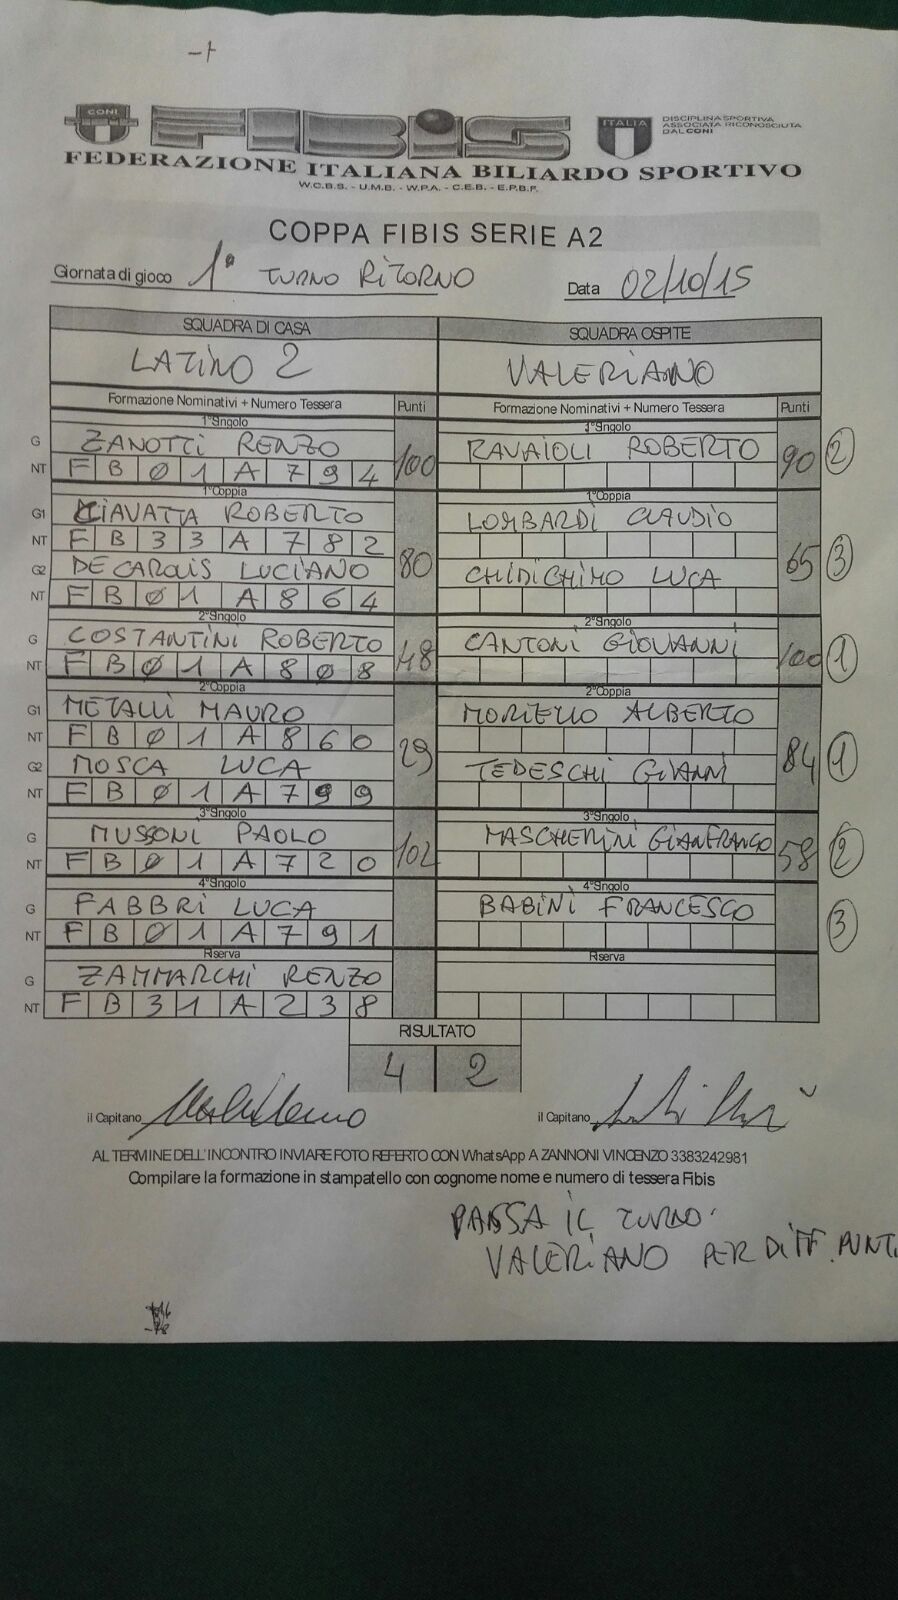 -1
CONI
FIBIS
ITALIA
DISCIPLINA SPORTIVA
ASSOCIATA RICONOSCIUTA
DAL CONI
FEDERAZIONE ITALIANA BILIARDO SPORTIVO
W.C.B.S. - U.M.B. - W.P.A. - C.E.B. - E.P.B.F.
COPPA FIBIS SERIE A2
Giornata di gioco 1° TURNO RITORNO Data 02/10/15
SQUADRA DI CASA SQUADRA OSPITE
LATINO 2 VALERIANO
Formazione Nominativi + Numero Tessera Punti Formazione Nominativi + Numero Tessera Punti
1°Singolo 1°Singolo
G ZANOTTI RENZO 100 RAVAIOLI ROBERTO 90 2
NT FB01A794
1°Coppia 1°Coppia
G1 CIAVATTA ROBERTO LOMBARDI CLAUDIO
NT FB33A782
80 65 3
G2 DE CAROLIS LUCIANO CHIDICHIMO LUCA
NT FB01A864
2°Singolo 2°Singolo
G COSTANTINI ROBERTO 48 CANTONI GIOVANNI 100 1
NT FB01A808
2°Coppia 2°Coppia
G1 METALLI MAURO MORIELLO ALBERTO
NT FB01A860
29 84 1
G2 MOSCA LUCA TEDESCHI GIANNI
NT FB01A799
3°Singolo 3°Singolo
G MUSSONI PAOLO 102 MASCHERINI GIANFRANCO 58 2
NT FB01A720
4°Singolo 4°Singolo
G FABBRI LUCA BABINI FRANCESCO 3
NT FB01A791
Riserva Riserva
G ZAMMARCHI RENZO
NT FB31A238
RISULTATO
4 2
il Capitano il Capitano
AL TERMINE DELL'INCONTRO INVIARE FOTO REFERTO CON WhatsApp A ZANNONI VINCENZO 3383242981
Compilare la formazione in stampatello con cognome nome e numero di tessera Fibis
PASSA IL TURNO
VALERIANO PER DIFF. PUNTI